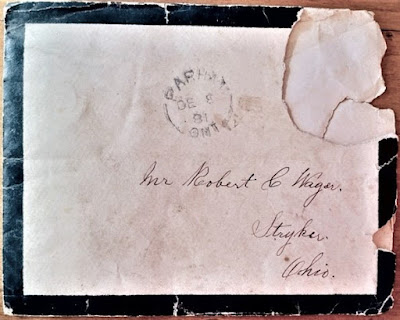 PARHAM
DE 8
81
ONT
Mr Robert C Wagar.
Stryker.
Ohio.